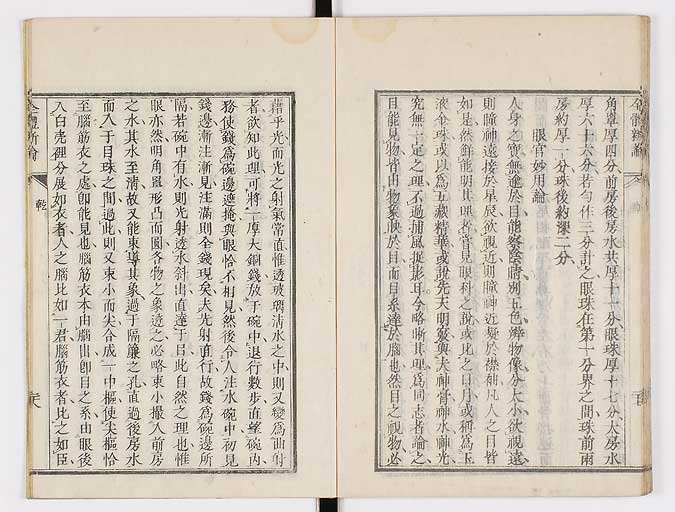 全體新論
角罩厚四分前房後房水共厚十一分眼珠厚十七分大房水
厚六十六分若勻作三分計之眼珠在第一分界之間珠前兩
房約厚一分珠後約深二分
眼官妙用論
人身之寶無逾於目能察陰晴別五色辨物像分大小欲視遠
則瞳神遠接於星辰欲視近則瞳神近凝於襟袖凡人之目皆
如是然鮮能明其理者嘗見眼科之說或比之日月或稱為玉
液金珠或以為五臟精華或說先天明竅與夫神膏神水神光
究無一定之理不過捕風捉影耳今略晰其理為同志者論之
目能見物皆由物象映於目而目系達於腦也然目之視物必
藉乎光而光之射氣常直惟透玻璃清水之中則又變為曲射
者欲知此理可將一厚大銅錢放于碗中退行數步直望碗內
務使錢為碗邊遮掩與眼恰不相見然後令人注水碗中初見
錢邊漸注漸見注滿則全錢現矣夫光射直行故錢為碗邊所
隔若碗中有水則光射透水斜出直達于目此自然之理也惟
眼亦然明角罩形凸而圓各物之象透之必略束小撮入前房
之水其水至清故又能束導其象過于隔簾之孔直過後房水
而入于目珠之間過此則又束小而尖合成一中樞使夫樞恰
至腦筋衣之處卽能見也腦筋衣本由腦出卽目之系由眼後
入白壳裡分展如衣者人之腦比如一君腦筋衣者比之如臣
全體新論
乾